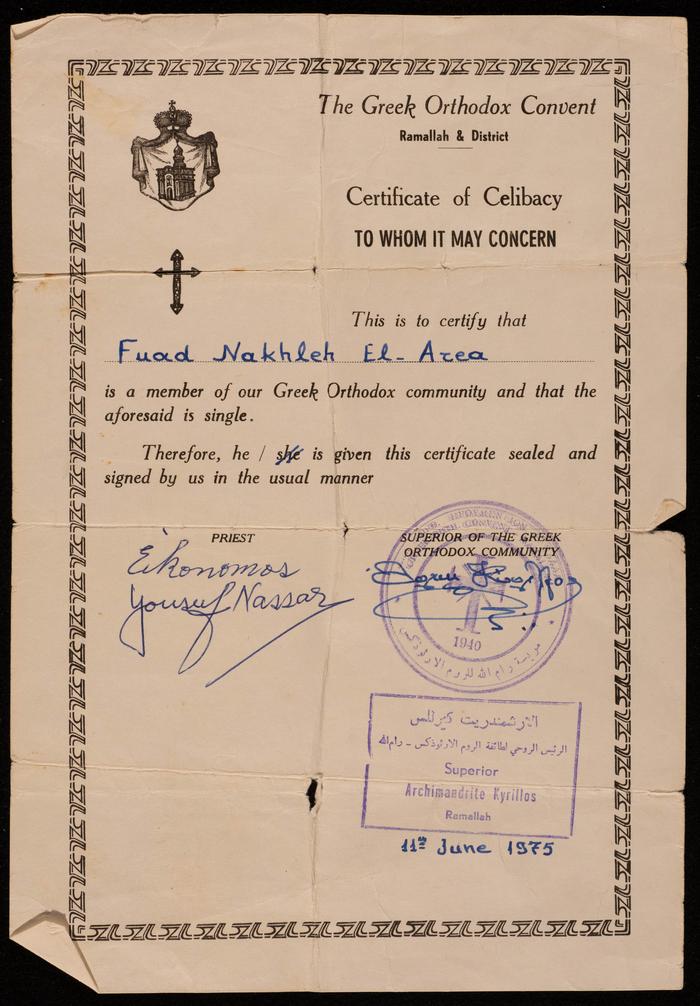 The Greek Orthodox Convent
Ramallah & District
Certificate of Celibacy
TO WHOM IT MAY CONCERN
This is to certify that
Fuad Nakhleh El-Area
is a member of our Greek Orthodox community and that the
aforesaid is single.
Therefore, he / she is given this certificate sealed and
signed by us in the usual manner
PRIEST
Eikonomos
Yousuf Nassar
SUPERIOR OF THE GREEK
ORTHODOX COMMUNITY
CONVENT
1940
رام الله للروم الارثوذكس
الارشمندريت كيرللس
الرئيس الروحي لطائفة الروم الارثوذكس - رام الله
Superior
Archimandrite Kyrillos
Ramallah
11th June 1975